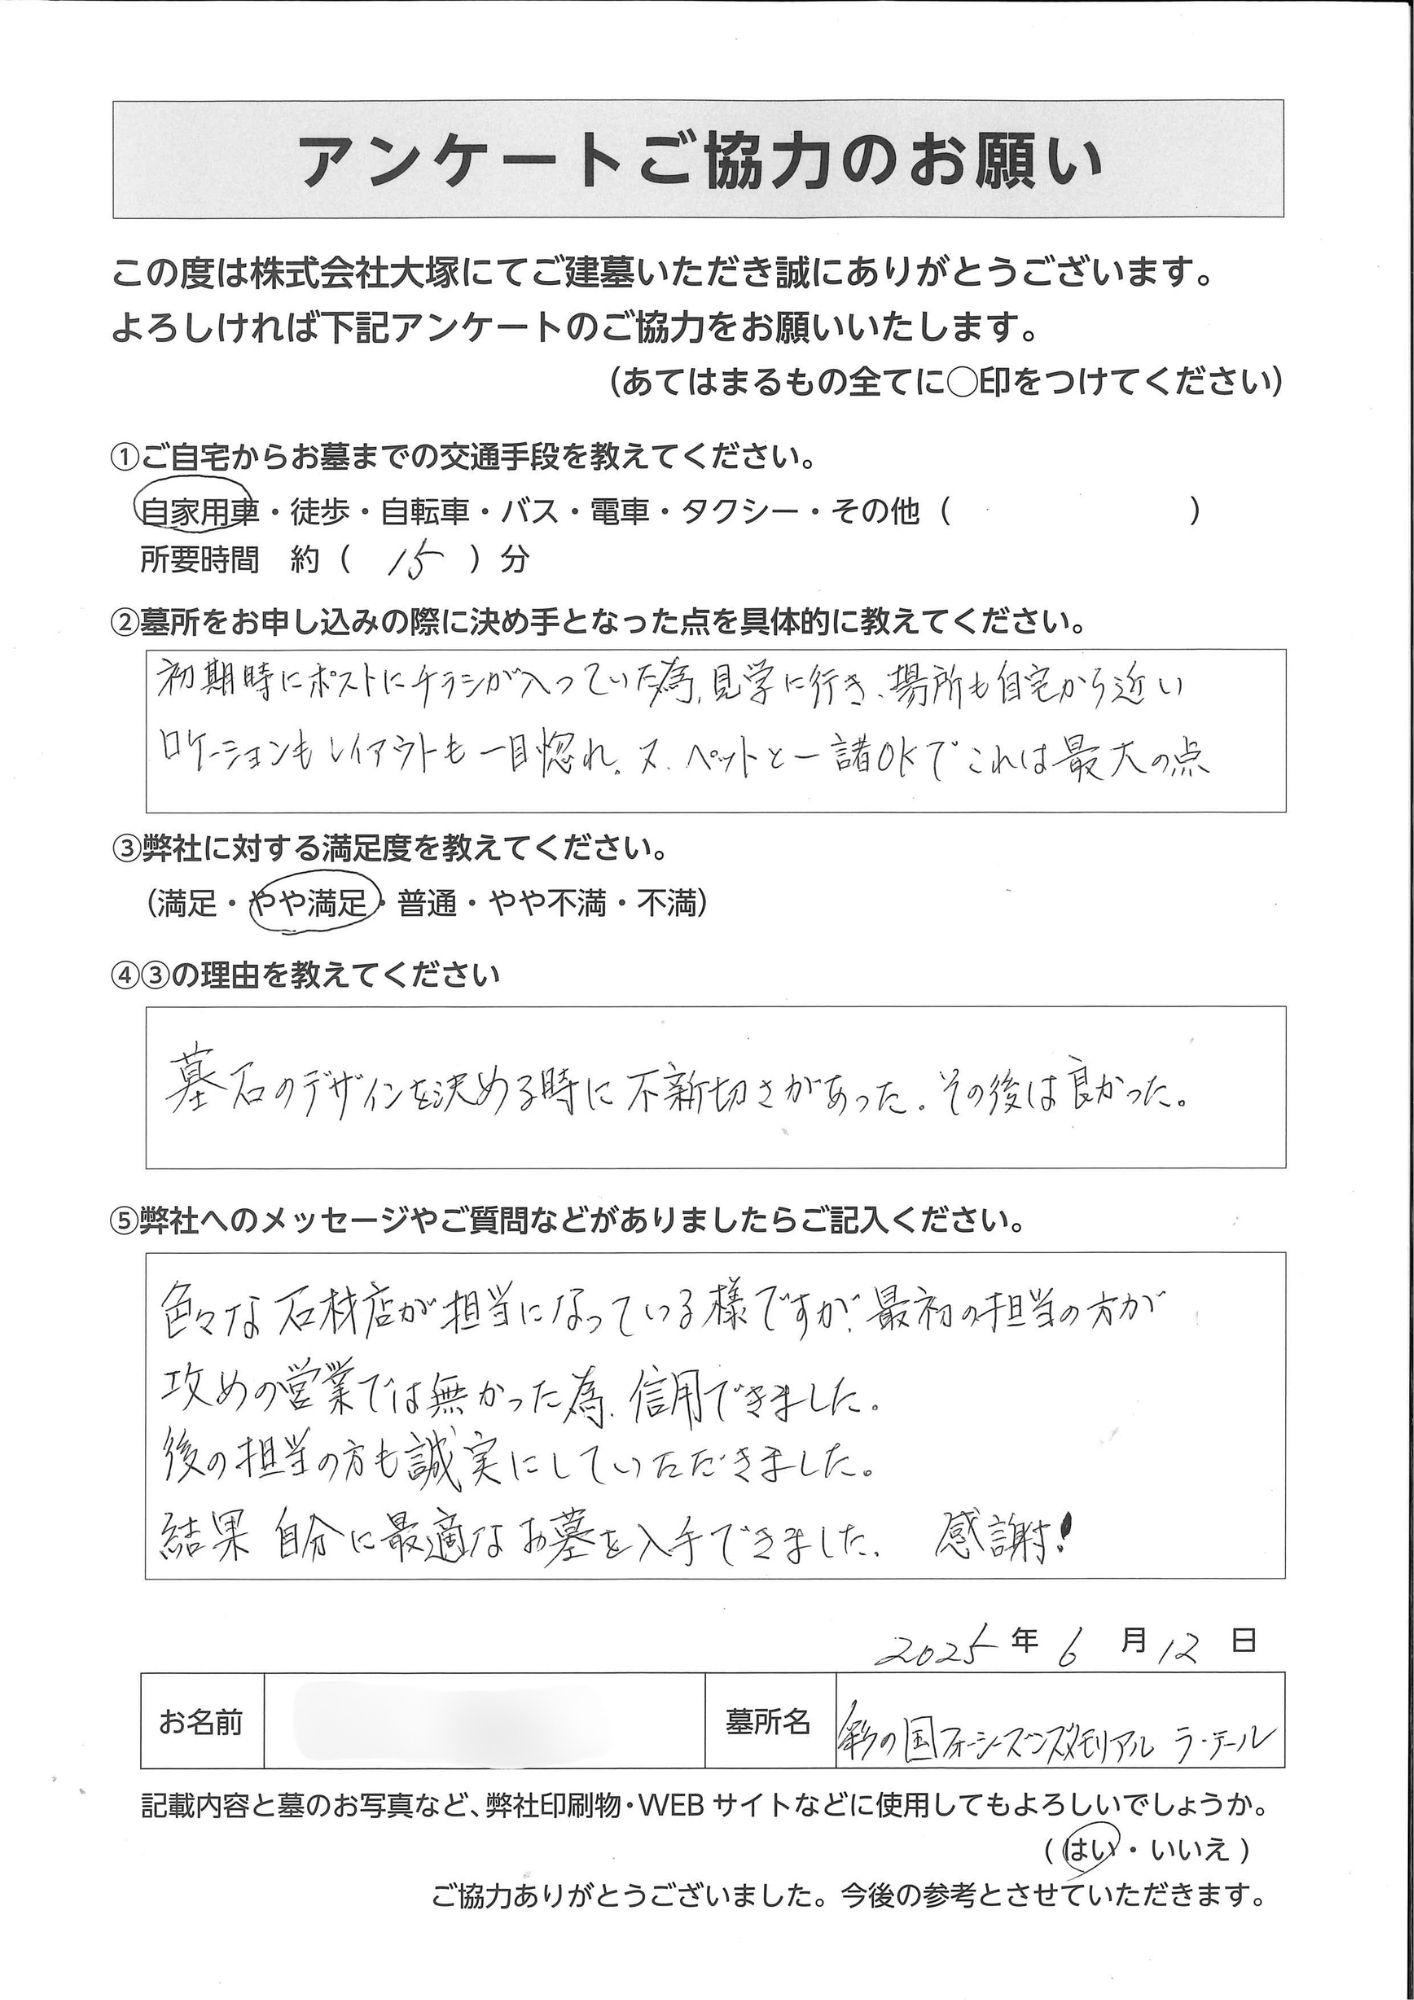 アンケートご協力のお願い
この度は株式会社大塚にてご建墓いただき誠にありがとうございます。
よろしければ下記アンケートのご協力をお願いいたします。
（あてはまるもの全てに○印をつけてください）
①ご自宅からお墓までの交通手段を教えてください。
自家用車・徒歩・自転車・バス・電車・タクシー・その他（　　　　　　　　）
所要時間　約（　15　）分
②墓所をお申し込みの際に決め手となった点を具体的に教えてください。
初期時にポストにチラシが入っていた為、見学に行き、場所も自宅から近い
ロケーションもレイアウトも一目惚れ。又、ペットと一諸OKでこれは最大の点
③弊社に対する満足度を教えてください。
（満足・やや満足・普通・やや不満・不満）
④③の理由を教えてください
墓石のデザインを決める時に不新切さがあった。その後は良かった。
⑤弊社へのメッセージやご質問などがありましたらご記入ください。
色々な石材店が担当になっている様ですが、最初の担当の方が
攻めの営業では無かった為、信用できました。
後の担当の方も誠実にしていただきました。
結果 自分に最適なお墓を入手できました。　感謝!
2025年 6 月 12 日
お名前　墓所名　彩の国フォーシーズンズメモリアル ラ・テール
記載内容と墓のお写真など、弊社印刷物・WEBサイトなどに使用してもよろしいでしょうか。
（はい・いいえ）
ご協力ありがとうございました。今後の参考とさせていただきます。